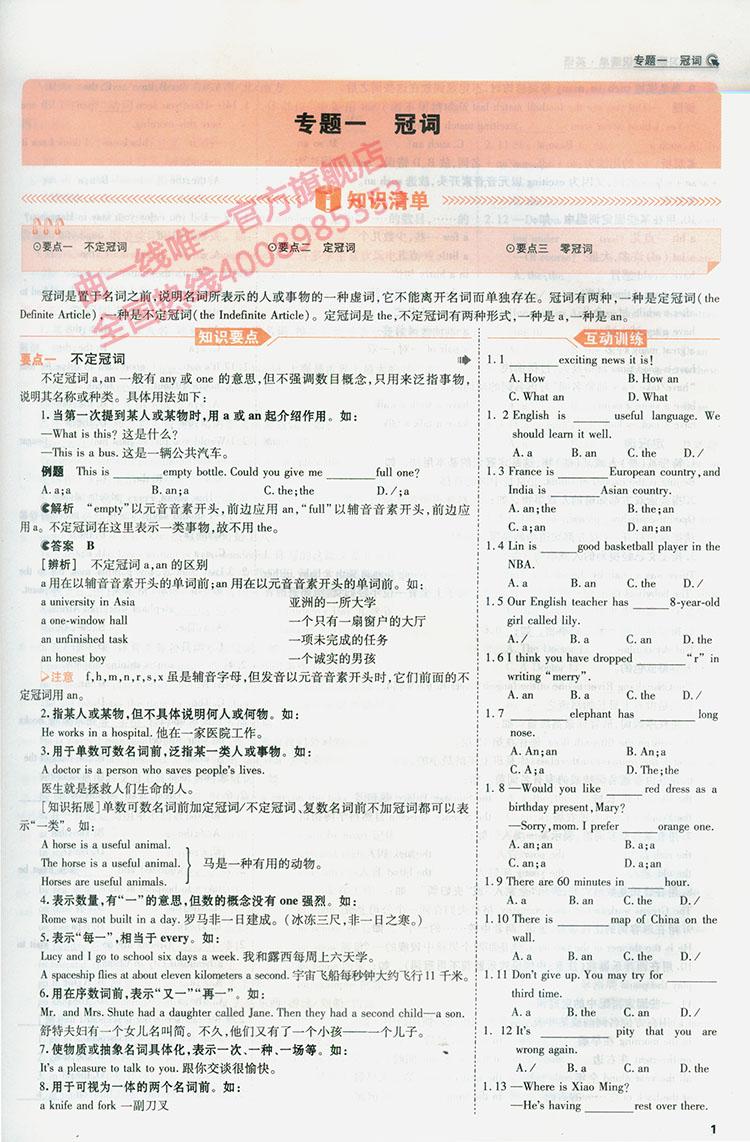 专题一 冠词
专题一 冠词
知识清单
⊙要点一 不定冠词
⊙要点二 定冠词
⊙要点三 零冠词
曲一线唯一官方旗舰店
全国热线4008985333
冠词是置于名词之前,说明名词所表示的人或事物的一种虚词,它不能离开名词而单独存在。冠词有两种,一种是定冠词(the
Definite Article),一种是不定冠词(the Indefinite Article)。定冠词是 the,不定冠词有两种形式,一种是 a,一种是 an。
知识要点
要点一 不定冠词
不定冠词 a,an 一般有 any 或 one 的意思,但不强调数目概念,只用来泛指事物,
说明其名称或种类。具体用法如下:
1.当第一次提到某人或某物时,用 a 或 an 起介绍作用。如:
—What is this? 这是什么?
—This is a bus. 这是一辆公共汽车。
例题 This is ________empty bottle. Could you give me ________full one?
A. a;a B. an;a C. the;the D. /;a
解析 “empty”以元音音素开头,前边应用 an,“full”以辅音音素开头,前边应
用 a。不定冠词在这里表示一类事物,故不用 the。
答案 B
[辨析] 不定冠词 a,an 的区别
a 用在以辅音音素开头的单词前;an 用在以元音音素开头的单词前。如:
a university in Asia 亚洲的一所大学
a one-window hall 一个只有一扇窗户的大厅
an unfinished task 一项未完成的任务
an honest boy 一个诚实的男孩
▷注意 f,h,m,n,r,s,x 虽是辅音字母,但发音以元音音素开头时,它们前面的不
定冠词用 an。
2.指某人或某物,但不具体说明何人或何物。如:
He works in a hospital. 他在一家医院工作。
3.用于单数可数名词前,泛指某一类人或事物。如:
A doctor is a person who saves people's lives.
医生就是拯救人们生命的人。
[知识拓展] 单数可数名词前加定冠词/不定冠词、复数名词前不加冠词都可以表
示“一类”。如:
A horse is a useful animal.
The horse is a useful animal. 马是一种有用的动物。
Horses are useful animals.
4.表示数量,有“一”的意思,但数的概念没有 one 强烈。如:
Rome was not built in a day. 罗马非一日建成。(冰冻三尺,非一日之寒。)
5.表示“每一”,相当于 every。如:
Lucy and I go to school six days a week. 我和露西每周上六天学。
A spaceship flies at about eleven kilometers a second. 宇宙飞船每秒钟大约飞行 11 千米。
6.用在序数词前,表示“又一”“再一”。如:
Mr. and Mrs. Shute had a daughter called Jane. Then they had a second child—a son.
舒特夫妇有一个女儿名叫简。不久,他们又有了一个小孩——一个儿子。
7.使物质或抽象名词具体化,表示一次、一种、一场等。如:
It's a pleasure to talk to you. 跟你交谈很愉快。
8.用于可视为一体的两个名词前。如:
a knife and fork 一副刀叉
互动训练
1. 1 ________exciting news it is!
A. How B. How an
C. What an D. What
1. 2 English is ______ useful language. We
should learn it well.
A. a B. an C. the D. /
1. 3 France is ________ European country, and
India is ________Asian country.
A. an;the B. the;an
C. a;an D. an;an
1. 4 Lin is ______good basketball player in the
NBA.
A. a B. an C. the D. /
1. 5 Our English teacher has ______8-year-old
girl called lily.
A. / B. a C. an D. the
1. 6 I think you have dropped ________“r” in
writing “merry”.
A. an B. a C. the D. /
1. 7 ________elephant has ________ long
nose.
A. An;an B. An;a
C. A;a D. The;the
1. 8 —Would you like ______red dress as a
birthday present,Mary?
—Sorry,mom. I prefer ______orange one.
A. an;an B. a;a
C. a;an D. an;a
1. 9 There are 60 minutes in ______hour.
A. an B. a C. the D. /
1. 10 There is ________ map of China on the
wall.
A. a B. an C. the D. /
1. 11 Don't give up. You may try for ________
third time.
A. a B. the C. an D. /
1. 12 It's ________ pity that you are
wrong again.
A. / B. a C. an D. the
1. 13 —Where is Xiao Ming?
—He's having ________rest over there.
1